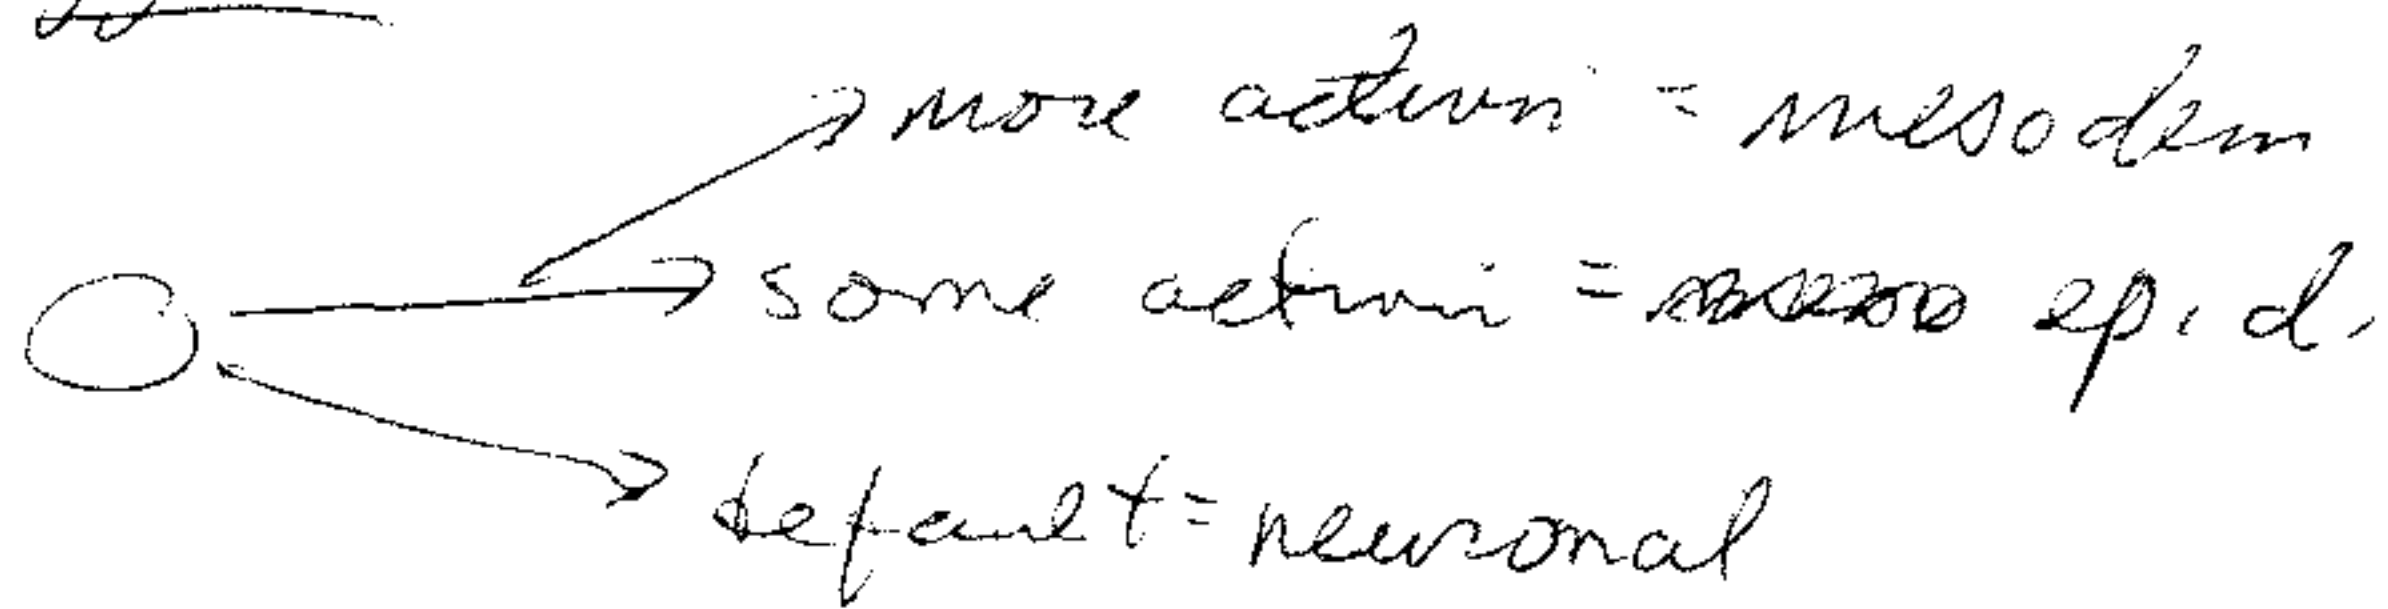 more activin = mesoderm
some activin = epid.
default = neuronal